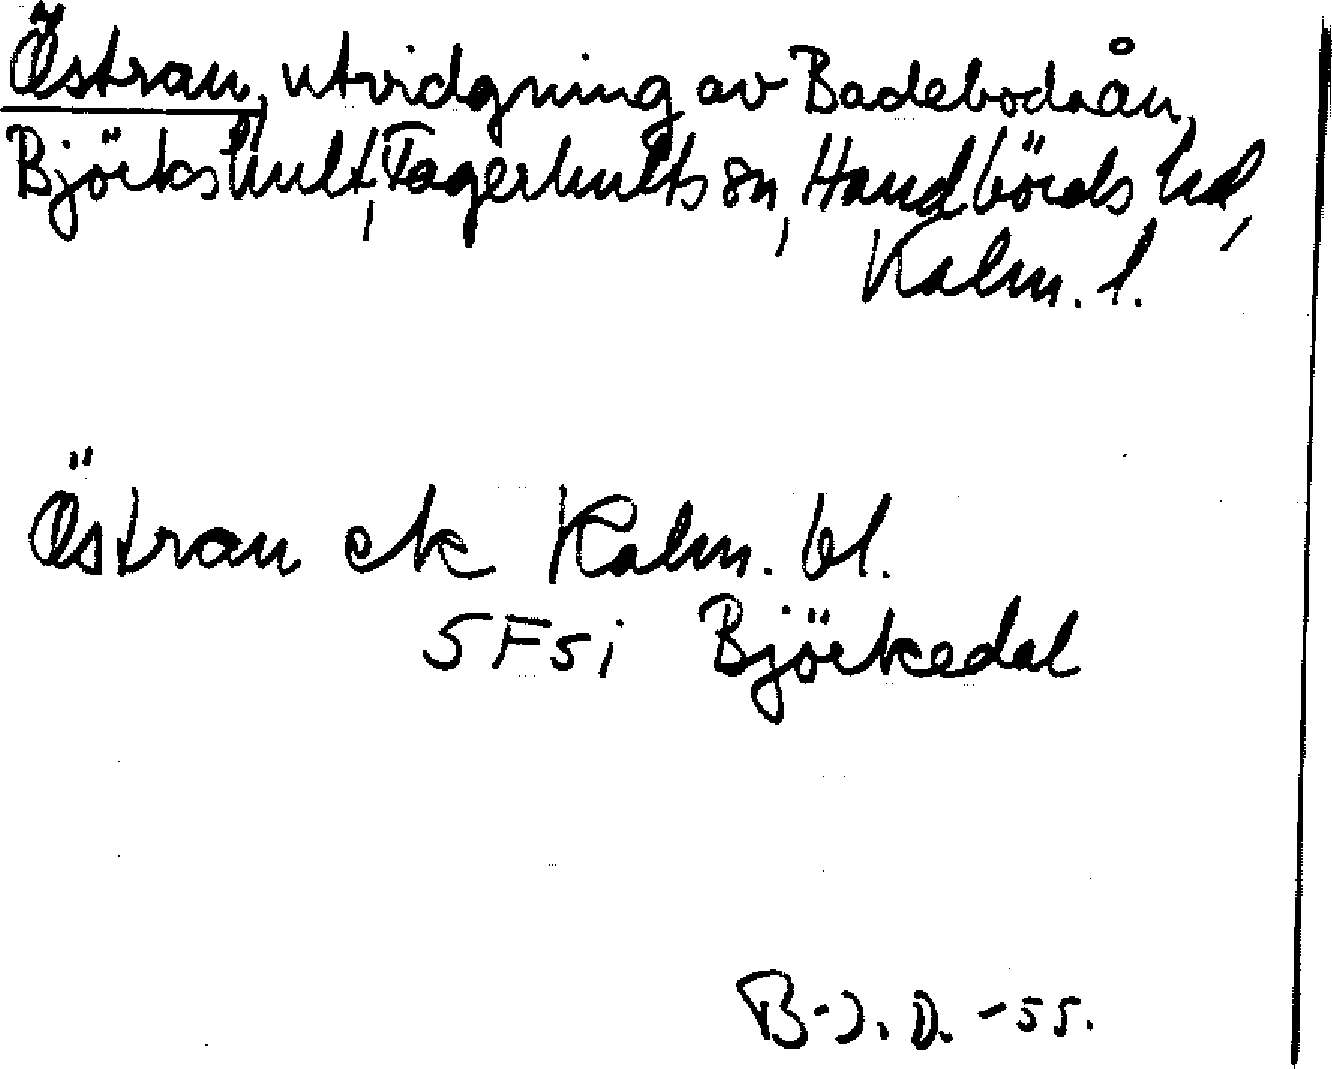 Östran, utvidgning av Badebodaån,
Björkshult, Fagerhults sn, Handbörds hd,
Kalm. l.
Östran ek Kalm. bl.
5F5i Björkedal
B-J. D. -55.